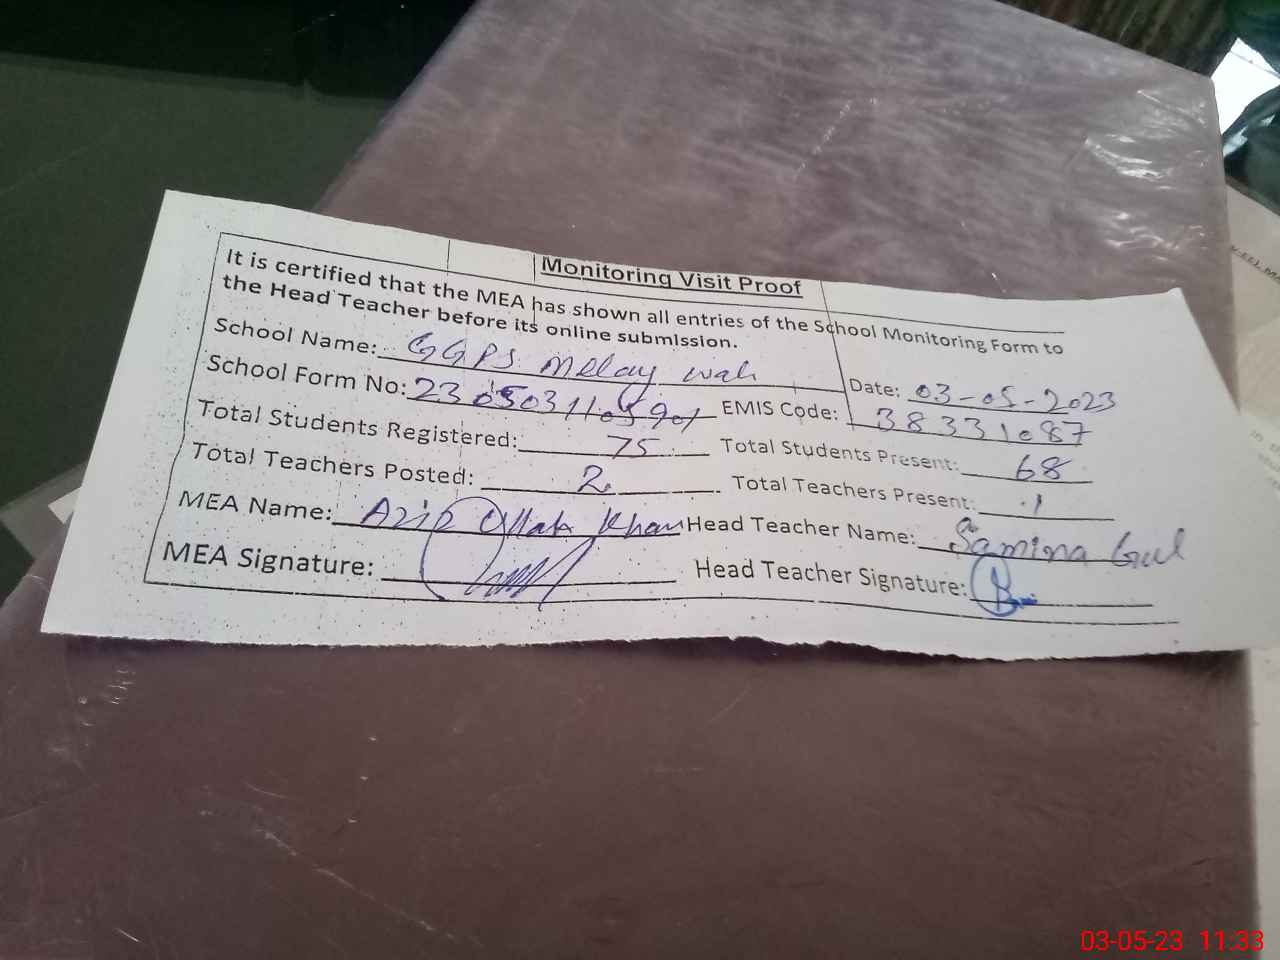 Monitoring Visit Proof
It is certified that the MEA has shown all entries of the School Monitoring Form to
the Head Teacher before its online submission.
School Name: GGPS Melay wah Date: 03-05-2023
School Form No: 2305031105901 EMIS Code: 38331087
Total Students Registered: 75 Total Students Present: 68
Total Teachers Posted: 2 Total Teachers Present: 1
MEA Name: Aziz Ullah Khan Head Teacher Name: Samina Gul
MEA Signature: Head Teacher Signature:
03-05-23 11:33